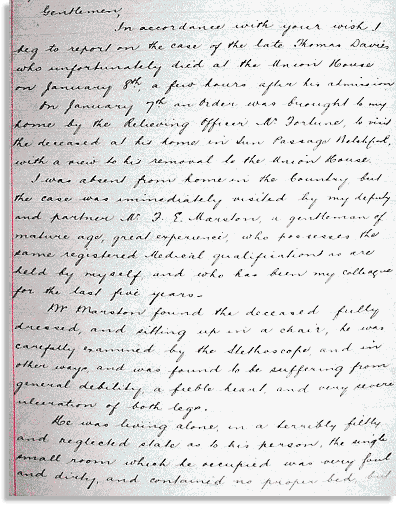 Gentlemen,
In accordance with your wish I
beg to report on the case of the late Thomas Davies
who unfortunately died at the Union House
on January 8th, a few hours after his admission
On January 7th an Order was brought to my
home by the Relieving Officer Mr Fortune, to visit
the deceased at his home in Sun Passage Welshpool,
with a view to his removal to the Union House.
I was absent from home in the Country but
the case was immediately visited by my deputy
and partner Mr F. E. Marston, a gentleman of
mature age, great experience, who possesses the
same registered Medical qualifications as are
held by myself, and who has been my colleague
for the last five years.
Mr Marston found the deceased fully
dressed, and sitting up in a chair, he was
carefully examined by the Stethoscope, and in
other ways, and was found to be suffering from
general debility, a feeble heart, and very severe
ulceration of both legs.
He was living alone, in a terribly filthy
and neglected state as to his person, the single
small room which he occupied was very foul
and dirty, and contained no proper bed, but